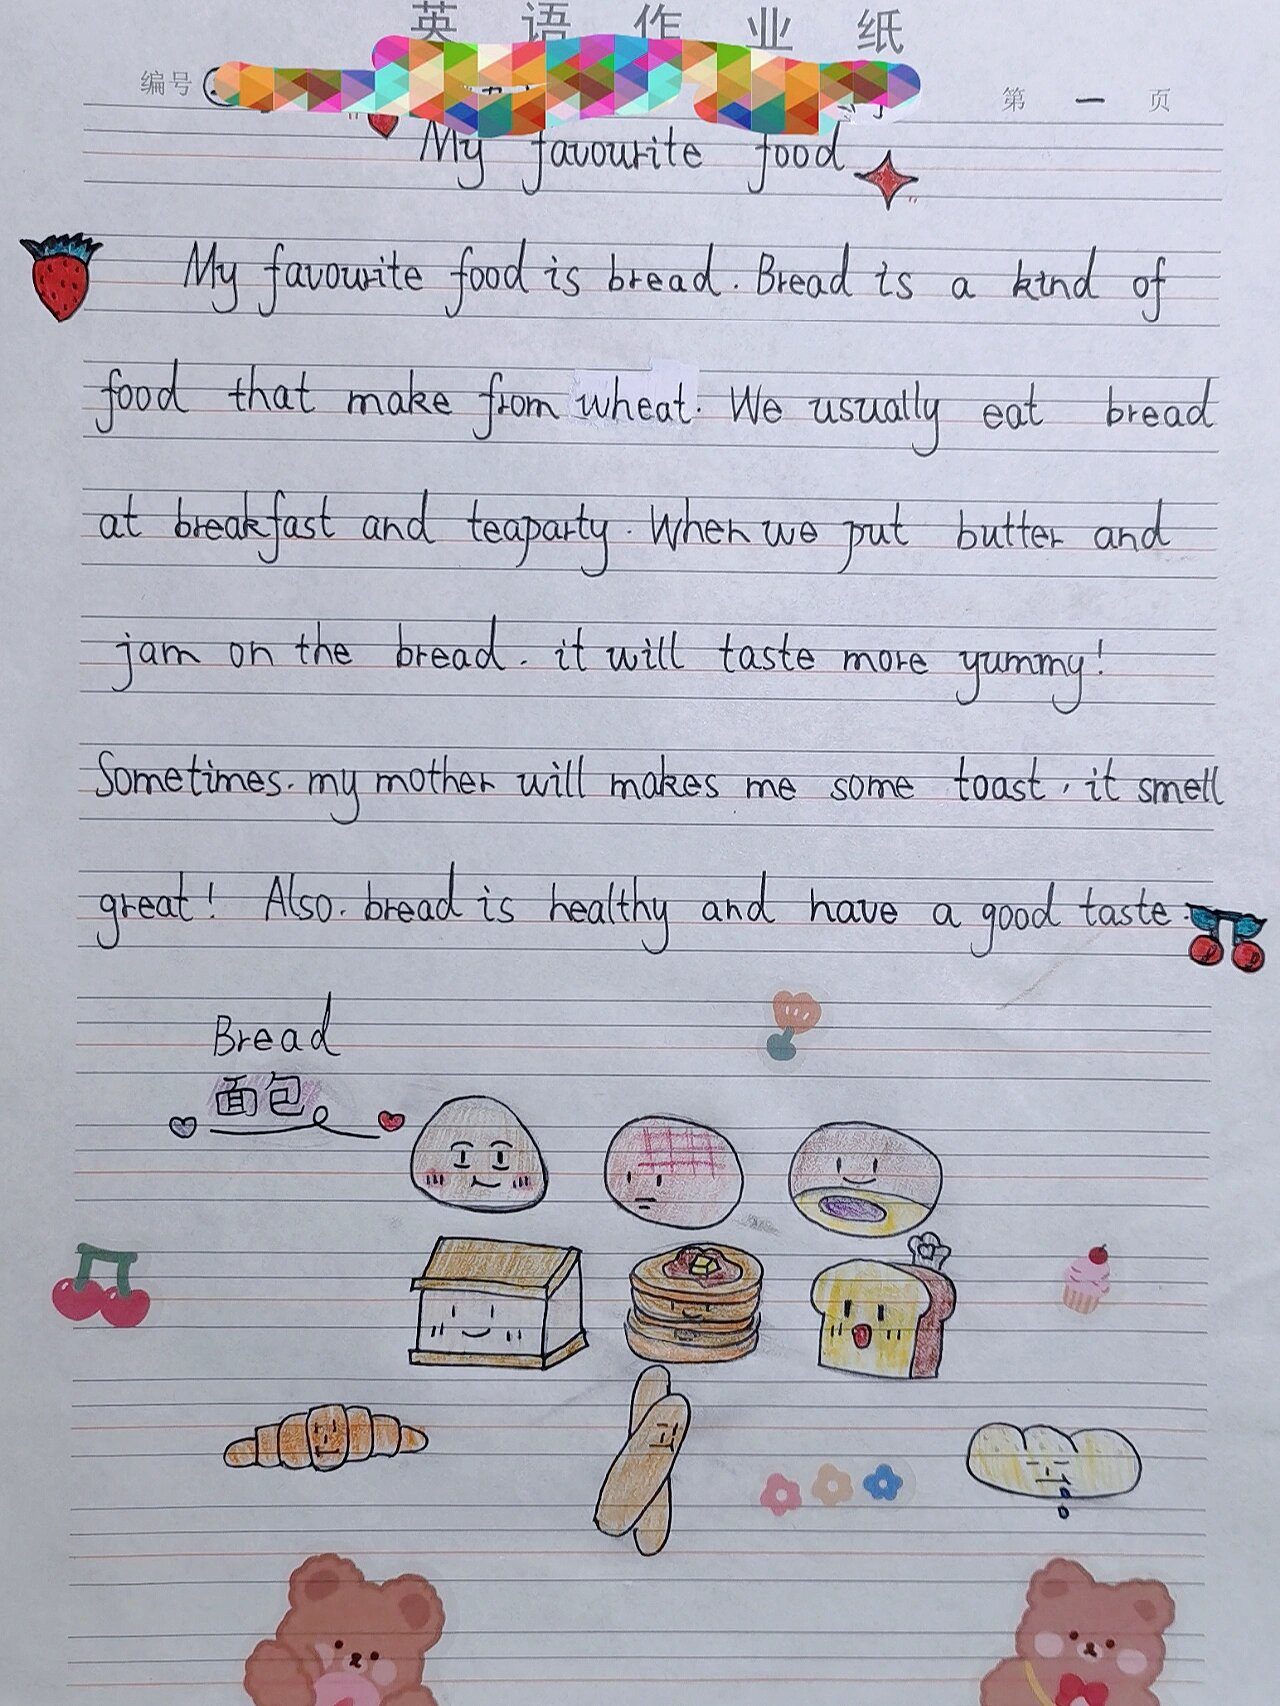 英语作业纸
编号 第 一 页
My favourite food
My favourite food is bread. Bread is a kind of
food that make from wheat. We usually eat bread
at breakfast and teaparty. When we put butter and
jam on the bread. it will taste more yummy!
Sometimes. my mother will makes me some toast, it smell
great! Also. bread is healthy and have a good taste.
Bread
面包